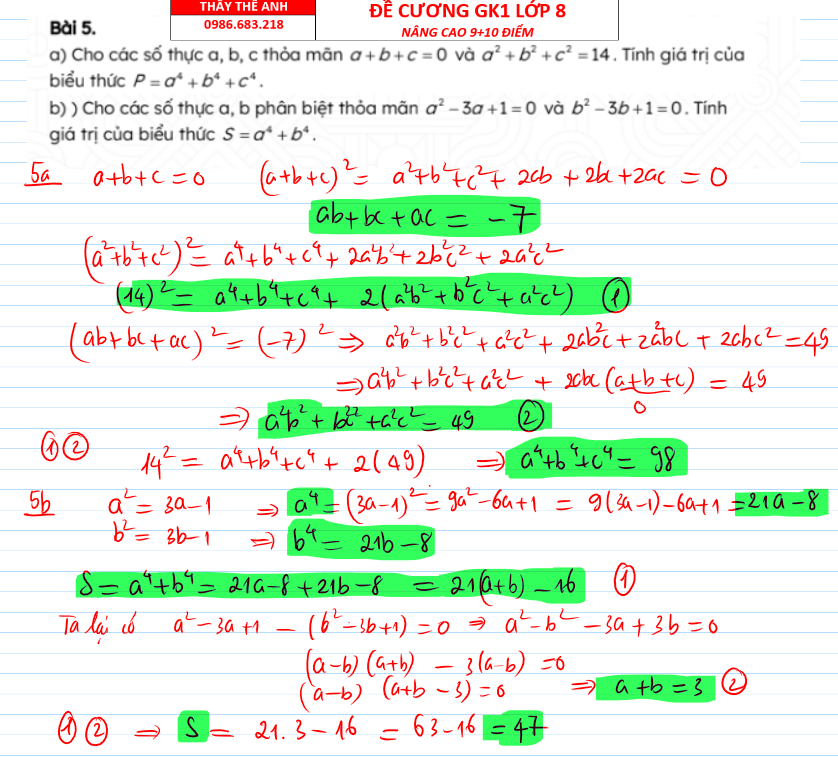 THẦY THẾ ANH
0986.683.218
ĐỀ CƯƠNG GK1 LỚP 8
NÂNG CAO 9+10 ĐIỂM
Bài 5.
a) Cho các số thực a, b, c thỏa mãn a+b+c=0 và a²+b²+c²=14. Tính giá trị của
biểu thức P=a⁴+b⁴+c⁴.
b) ) Cho các số thực a, b phân biệt thỏa mãn a²−3a+1=0 và b²−3b+1=0. Tính
giá trị của biểu thức S=a⁴+b⁴.
5a a+b+c=0 (a+b+c)²= a²+b²+c²+ 2ab + 2bc+2ac = 0
ab+bc+ac = −7
(a²+b²+c²)²= a⁴+b⁴+c⁴+2a²b²+2b²c²+2a²c²
(14)²= a⁴+b⁴+c⁴+ 2(a²b²+b²c²+a²c²) ①
(ab+bc+ac)²=(−7)² ⇒ a²b²+b²c²+a²c²+2ab²c+2a²bc+2abc²=49
⇒a²b²+b²c²+a²c² + 2abc(a+b+c) = 49
0
⇒ a²b²+b²c²+a²c²=49 ②
①② 14²= a⁴+b⁴+c⁴+2(49) ⇒ a⁴+b⁴+c⁴= 98
5b a²=3a−1 ⇒ a⁴=(3a−1)²=9a²−6a+1 = 9(3a−1)−6a+1=21a−8
b²=3b−1 ⇒ b⁴= 21b−8
S=a⁴+b⁴=21a−8+21b−8 =21(a+b)−16 ①
Ta lại có a²−3a+1 −(b²−3b+1)=0 ⇒ a²−b²−3a+3b=0
(a−b)(a+b) − 3(a−b) =0
(a−b) (a+b−3)=0 ⇒ a+b=3 ②
①② ⇒ S= 21.3−16 = 63−16 =47